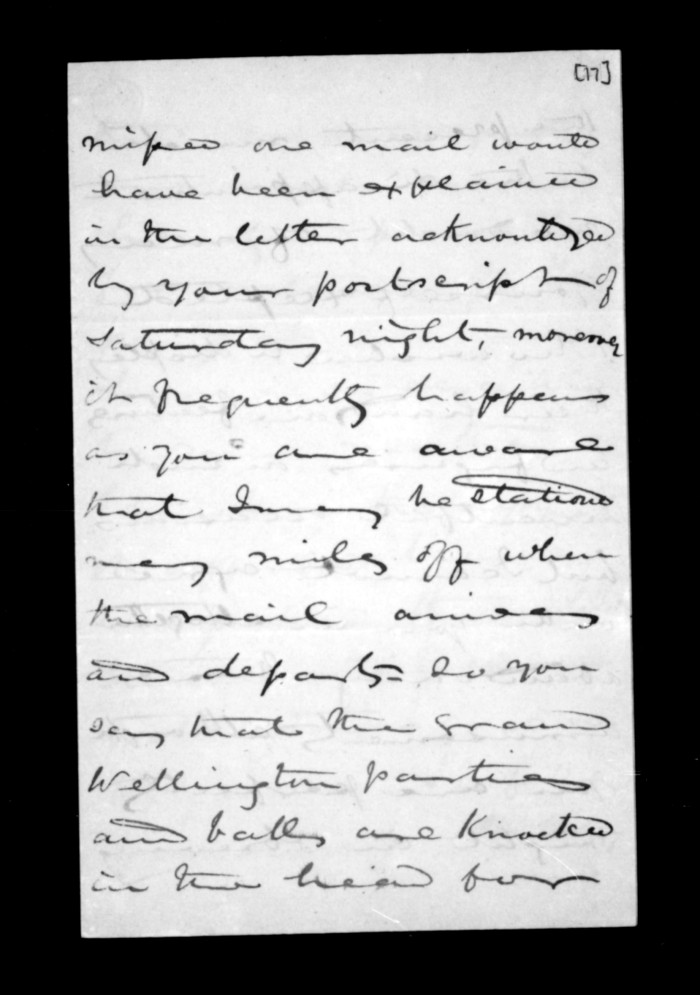 [17]
missed one mail would
have been explained
in the letter acknowledged
by your postscript of
Saturday night, moreover
it frequently happens
as you are aware
that I may be stationed
many miles off when
the mail arrives
and departs = So you
say that the grand
Wellington parties
and balls are Knocked
in the head for